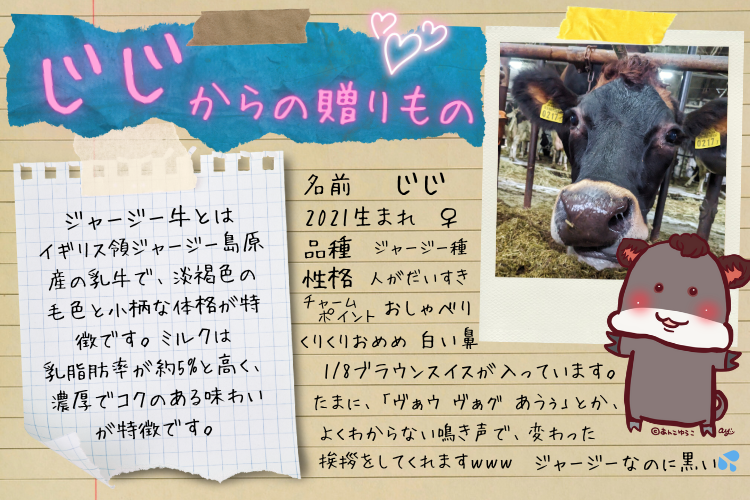 じじからの贈りもの
ジャージー牛とは
イギリス領ジャージー島原
産の乳牛で、淡褐色の
毛色と小柄な体格が特
徴です。ミルクは
乳脂肪率が約5%と高く、
濃厚でコクのある味わい
が特徴です。
名前 じじ
2021生まれ ♀
品種 ジャージー種
性格 人がだいすき
チャームポイント おしゃべり
くりくりおめめ 白い鼻
1/8ブラウンスイスが入っています。
たまに、「ヴぁゥ ヴぁグ あぅぅ」とか、
よくわからない鳴き声で、変わった
挨拶をしてくれますwww ジャージーなのに黒い💦
0217
0217
©あんこゆうこ